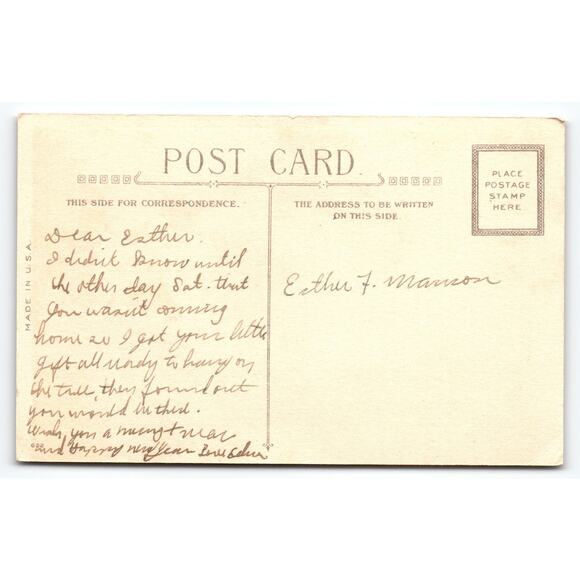 POST CARD.
THIS SIDE FOR CORRESPONDENCE.
THE ADDRESS TO BE WRITTEN
ON THIS SIDE.
PLACE
POSTAGE
STAMP
HERE
MADE IN U.S.A.
Dear Esther.
I didn't know until
the other day Sat. that
you wasn't coming
home so I got your little
gift all ready to hang on
the tree, then found out
you would
Wish you a merry
and Happy New Year Love
Esther F. Manson
622